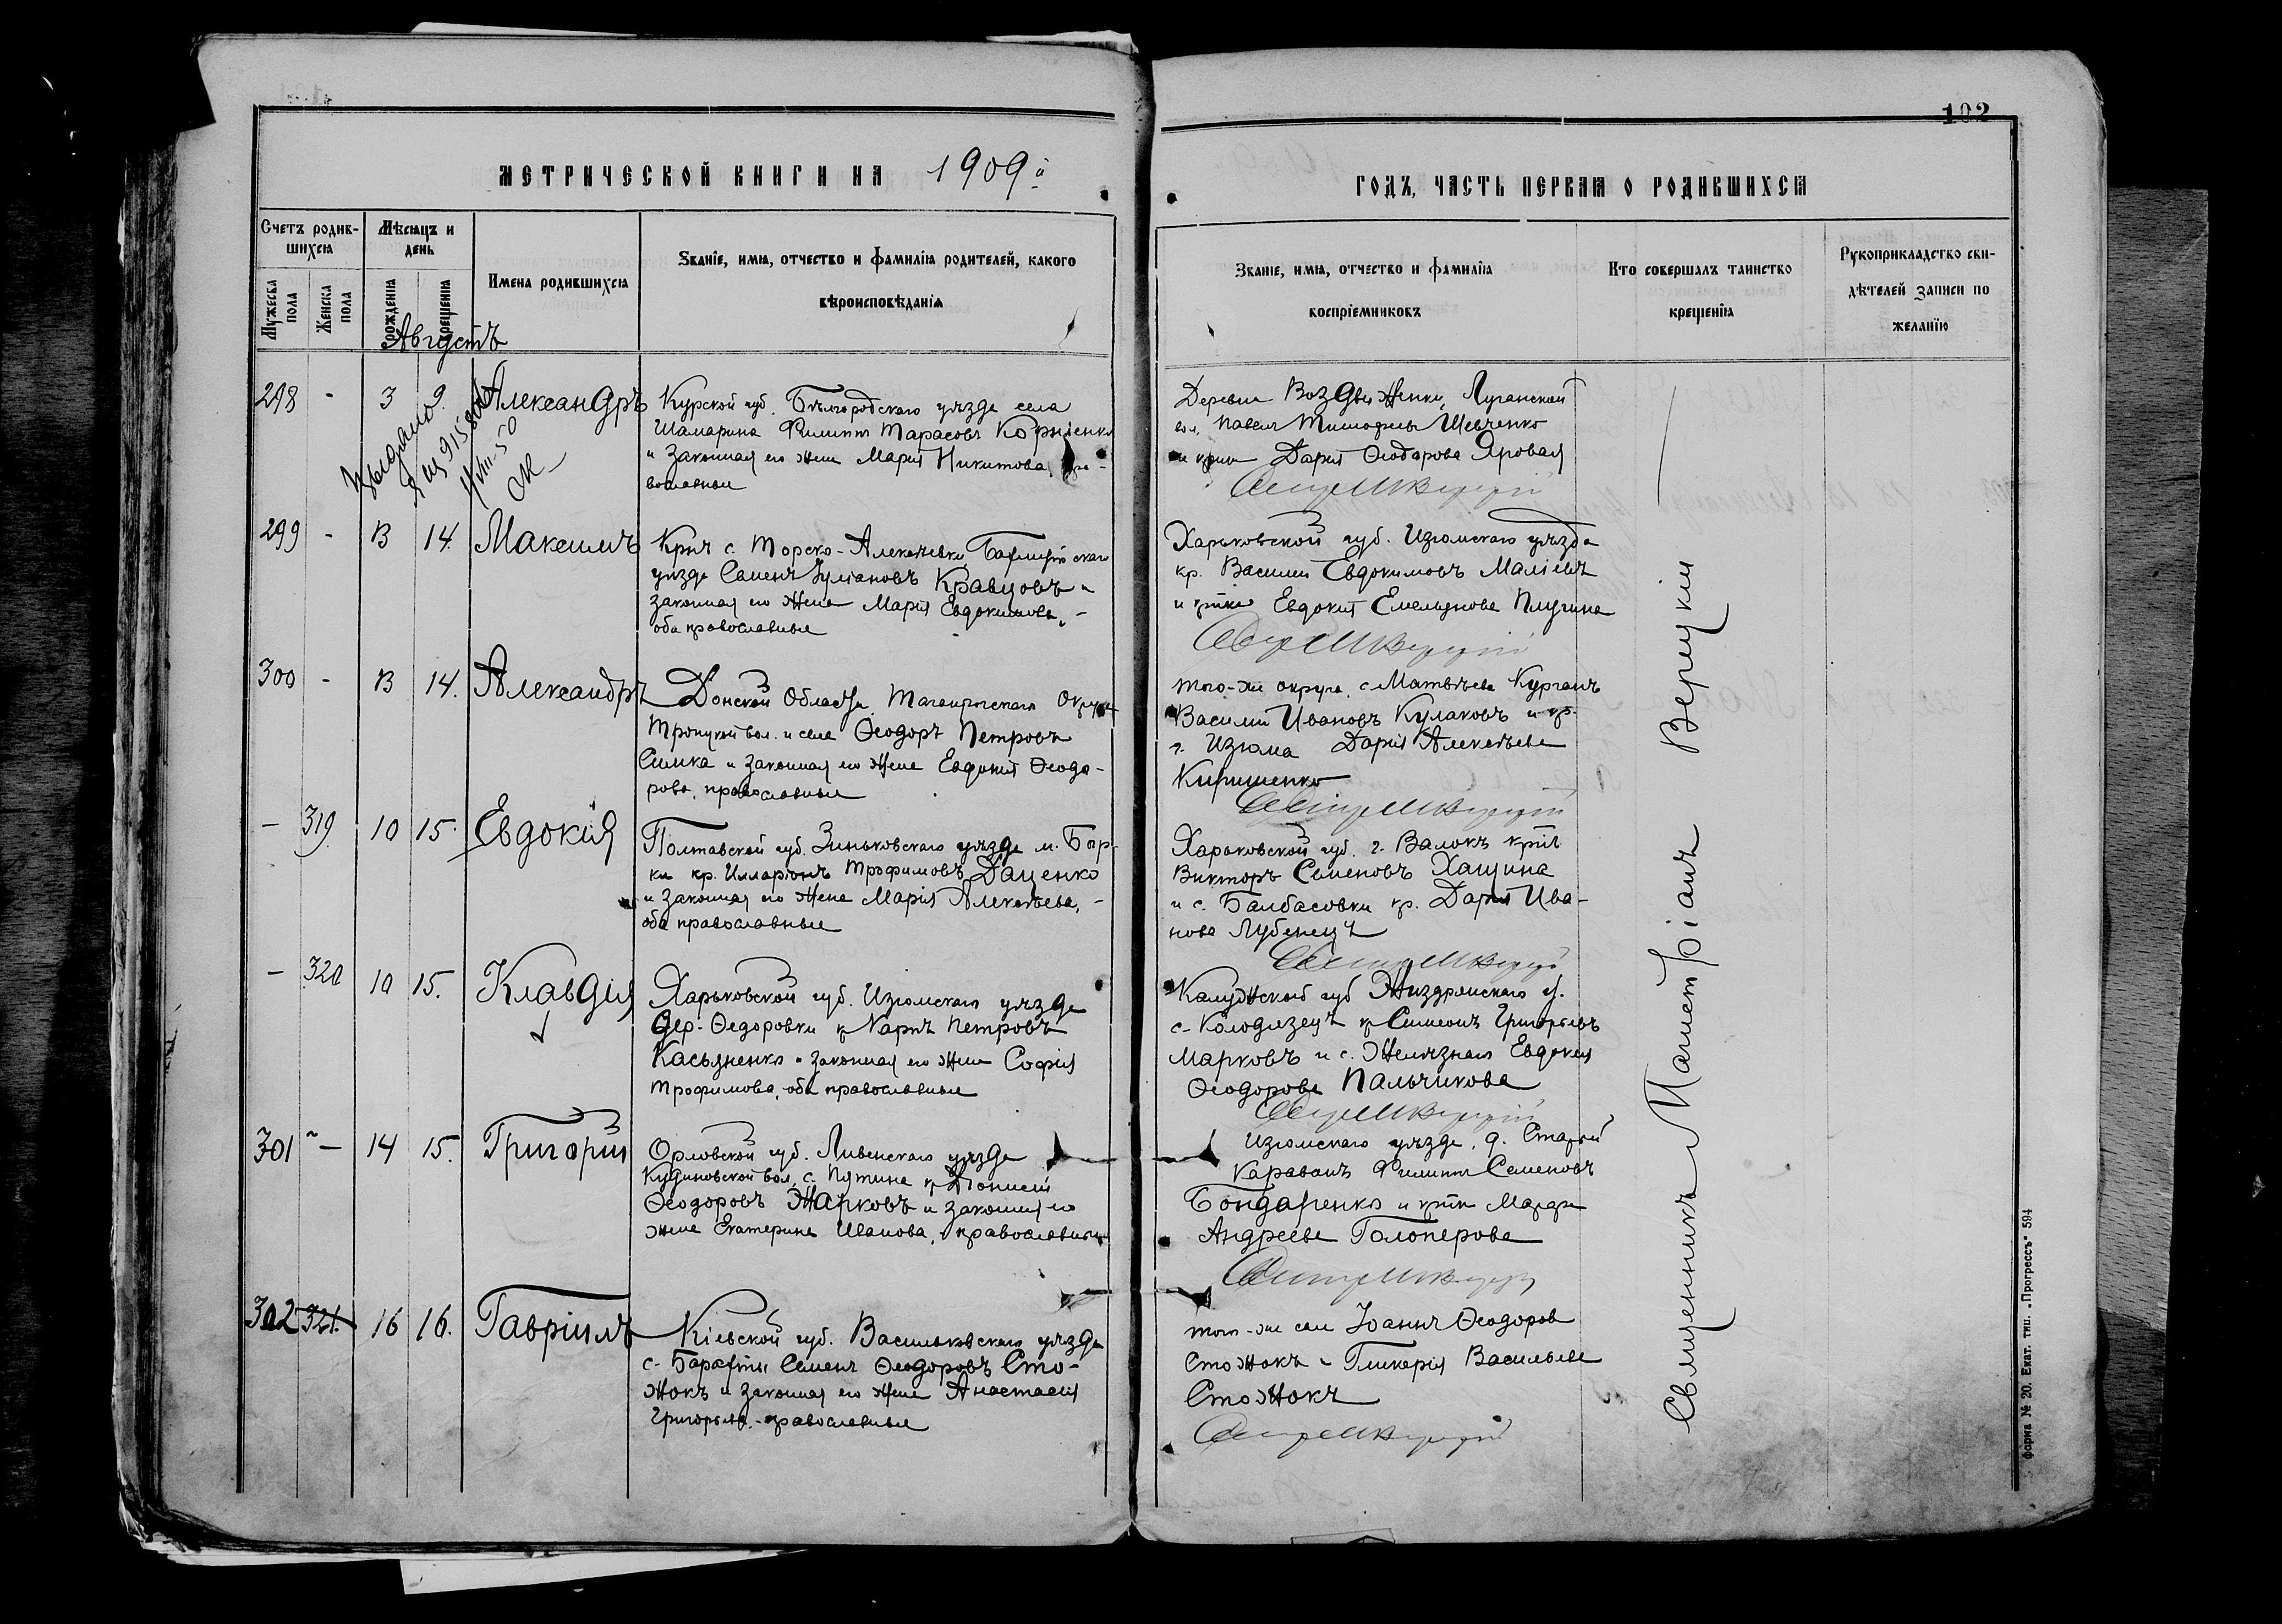 102
МЕТРИЧЕСКОЙ КНИГИ НА 1909й
ГОДЪ, ЧАСТЬ ПЕРВАЯ О РОДИВШИХСЯ
Счетъ родив-
шихся
Мужеска
пола
Женска
пола
Мѣсяцъ и
день
рожденія
крещенія
Имена родившихся
Званіе, имя, отчество и фамилія родителей, какого
вѣроисповѣданія
Званіе, имя, отчество и фамилія
воспріемниковъ
Кто совершалъ таинство
крещенія
Рукоприкладство сви-
дѣтелей записи по
желанію
Августъ
298 - 3 9. Александръ
Выдано
Курской губ. Бѣлгородскаго уѣзда села
Шамарина Филиппъ Тарасовъ Корніенко
и законная его жена Марія Никитова, пра-
вославные
Деревни Воздвиженки, Луганской
вол. Павелъ Тимофеевъ Шевченко
и Дарія Ѳеодорова Яровая
299 - 8 14. Максимъ
Крнъ с. Торско-Алексѣевки
уѣзда Семенъ Кравцовъ и
законная его жена Марія Евдокимова, -
оба православные
Харьковской губ. Изюмскаго уѣзда
кр. Василий Евдокимовъ Маліевъ
и Евдокія Емельянова Плугина
300 - 8 14. Александръ
Донской Области Таганрогскаго Округа
Троицкой вол. и села Ѳеодоръ Петровъ
Симка и законная его жена Евдокія Ѳеодо-
рова, православные
того-же округа, с. Матвѣева Курганъ
Василий Ивановъ Кулаковъ и кр.
г. Изюма Дарія Алексѣева
Киришенко
- 319. 10 15. Евдокія
Полтавской губ. Зиньковскаго уѣзда м. Бор-
ки кр. Илларіонъ Трофимовъ Даценко
и законная его жена Марія Алексѣева, -
оба православные
Харьковской губ. г. Валокъ
Викторъ Семеновъ Хащина
и с. Балбасовки кр. Дарія Ива-
нова Лубенецъ
- 320 10 15. Клавдія
Харьковской губ. Изюмскаго уѣзда
дер. Ѳедоровки Карпъ Петровъ
Касьяненко и законная его жена Софія
Трофимова, оба православные
Калужской губ Жиздринскаго у.
с. Колодезецъ Симеонъ Григорьевъ
Марковъ и с. Желѣзнаго Евдокія
Ѳеодорова Пальчикова
301 - 14 15. Григорій
Орловской губ. Ливенскаго уѣзда
Кудиновской вол, с. Пятина Діонисій
Ѳеодоровъ Жарковъ и законная его
жена Екатерина Иванова, православные
Изюмскаго уѣзда, д. Старый
Караванъ Филиппъ Семеновъ
Бондаренко и
Андреева Голоперова
302 321. 16 16. Гавріилъ
Кіевской губ. Васильковскаго уѣзда
с. Барахты Семенъ Ѳеодоровъ Сто-
жокъ и законная его жена Анастасія
Григорьева, православные
того-же села Іоаннъ Ѳеодоров
Стожокъ и Гликерія Васильева
Стожокъ
Священникъ Магистріанъ Верецкій
Форма № 20. Екат. тип. „Прогрессъ“ 594